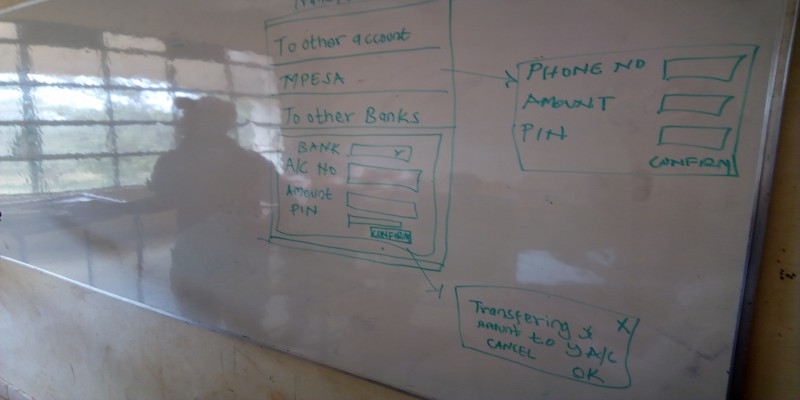 To other account
MPESA
To other Banks
BANK
A/C NO
Amount
PIN
CONFIRM
PHONE NO
AMOUNT
PIN
CONFIRM
Transfering x X
AMOUNT to y A/C
CANCEL
OK